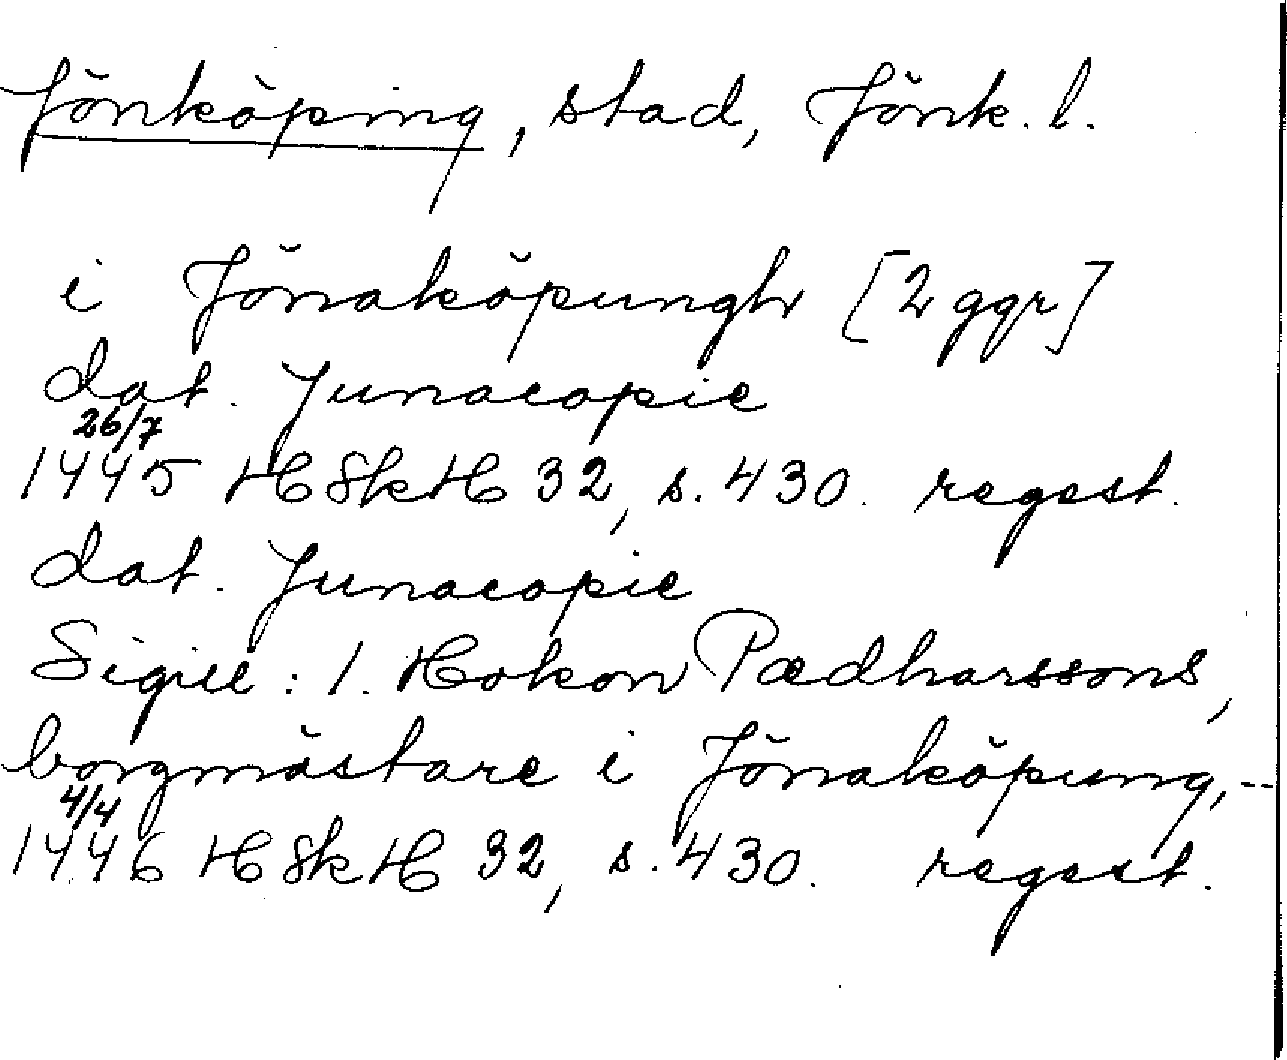 Jönköping, stad, Jönk. l.
i Jönaköpungh [2 ggr]
dat. Junacopie
26/7
1445 HSkH 32, s. 430. regest.
dat. Junacopie
Sigill: 1. Hokon Pædharssons,
borgmästare i Jönaköpung,--
4/4
1446 HSkH 32, s. 430. regest.